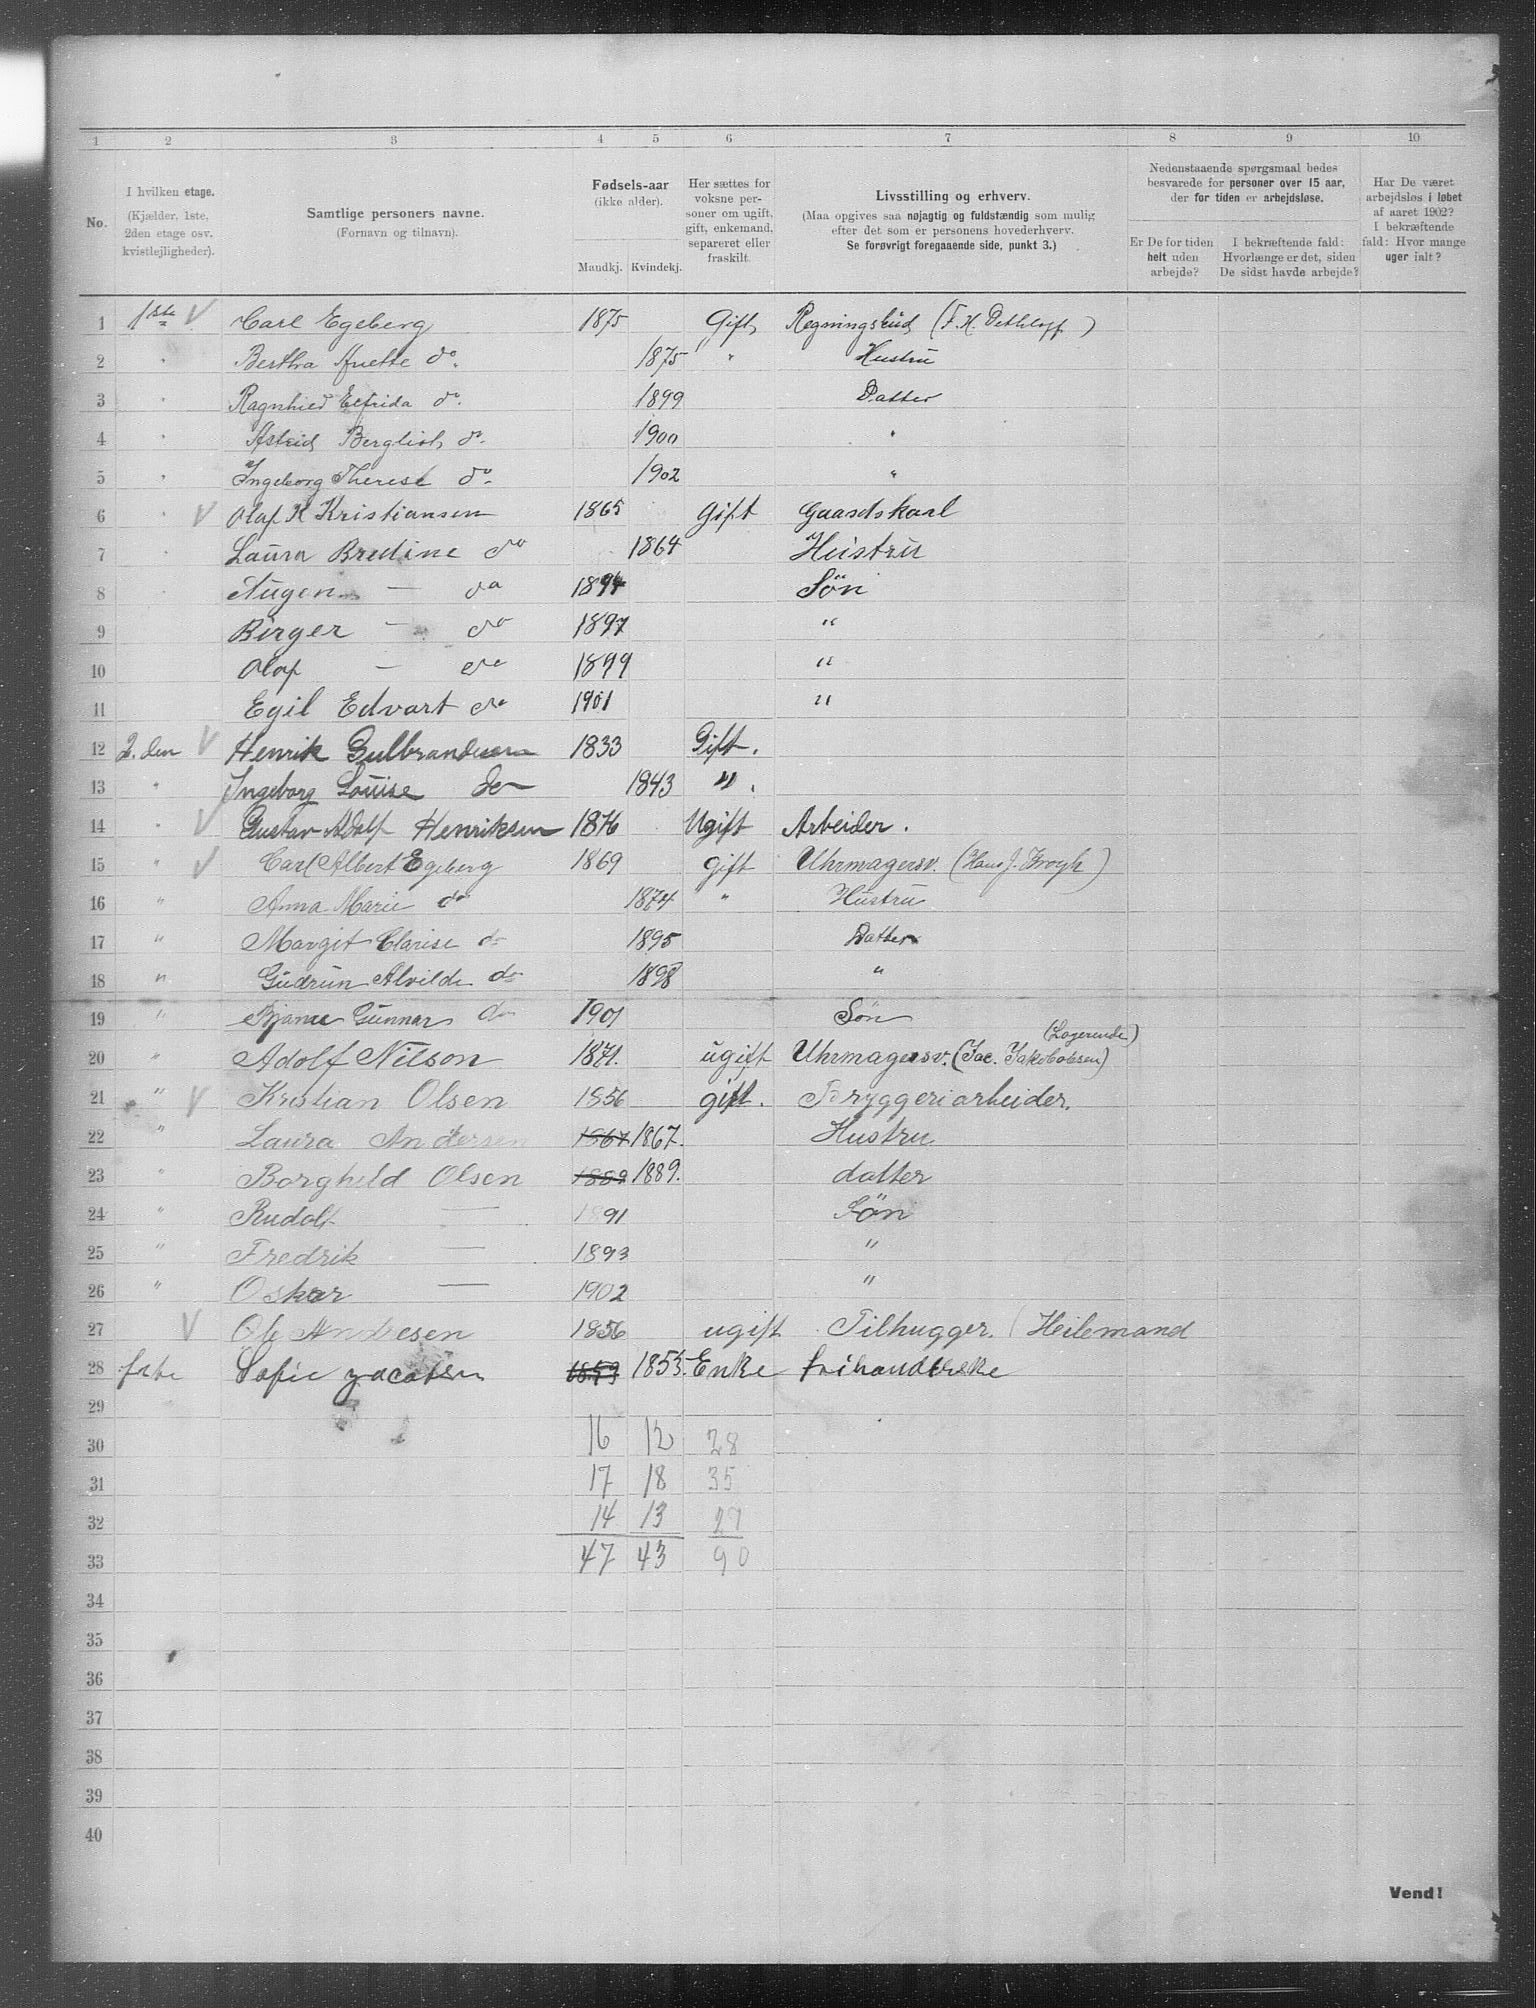 1 2 3 4 5 6 7 8 9 10
No. I hvilken etage. (Kjælder, 1ste, 2den etage osv. kvistlejligheder). Samtlige personers navne. (Fornavn og tilnavn). Fødsels-aar (ikke alder). Mandkj. Kvindekj. Her sættes for voksne personer om ugift, gift, enkemand, separeret eller fraskilt. Livsstilling og erhverv. (Maa opgives saa nøjagtig og fuldstændig som mulig efter det som er personens hovederhverv. Se forøvrigt foregaaende side, punkt 3.)
Nedenstaaende spørgsmaal bedes besvarede for personer over 15 aar, der for tiden er arbejdsløse.
Er De for tiden helt uden arbejde? I bekræftende fald: Hvorlænge er det, siden De sidst havde arbejde?
Har De været arbejdsløs i løbet af aaret 1902? I bekræftende fald: Hvor mange uger ialt?
1 1ste V Carl Egeberg 1875 Gift Regningsbud (F. H. Dethloff)
2 " Bertha Anette do. 1875 " Hustru
3 " Ragnhild Elfrida do. 1899 Datter
4 " Astrid Bergliot do. 1900 "
5 " Ingeborg Therese do. 1902 "
6 " V Olaf K Kristiansen 1865 Gift Gaardskarl
7 " Laura Bredine do 1864 Hustru
8 " Augen — do 1894 Søn
9 Birger — do 1897 "
10 Olaf — do 1899 "
11 Egil Edvart do 1901 "
12 2.den V Henrik Gulbrandsen 1833 Gift.
13 " Ingeborg Louise do 1843 ".
14 " V Gustav Adolf Henriksen 1876 Ugift Arbeider.
15 " V Carl Albert Egeberg 1869 gift Uhrmagersv. (Hans J. Krogh)
16 " Anna Marie do 1874 " Hustru
17 " Margit Clarise do 1895 Datter
18 " Gudrun Alvilde do 1898 "
19 " Bjarne Gunnar do 1901 Søn
20 " Adolf Nilson 1871. ugift Uhrmagersv. (Jac. Jakobsen) (Logerende)
21 " V Kristian Olsen 1856 gift. Bryggeriarbeider.
22 " Laura Andersen 1867 1867. Hustru
23 " Borghild Olsen 1889 1889. datter
24 " Rudolf — 1891 Søn
25 " Fredrik — 1893 "
26 " Oskar — 1902 "
27 V Ole Andresen 1856 ugift Tilhugger. (Heilemand
28 Sofie Jacobsen 1853 1853. Enke
29
30 16 12 28
31 17 18 35
32 14 13 27
33 47 43 90
34
35
36
37
38
39
40
Vend!